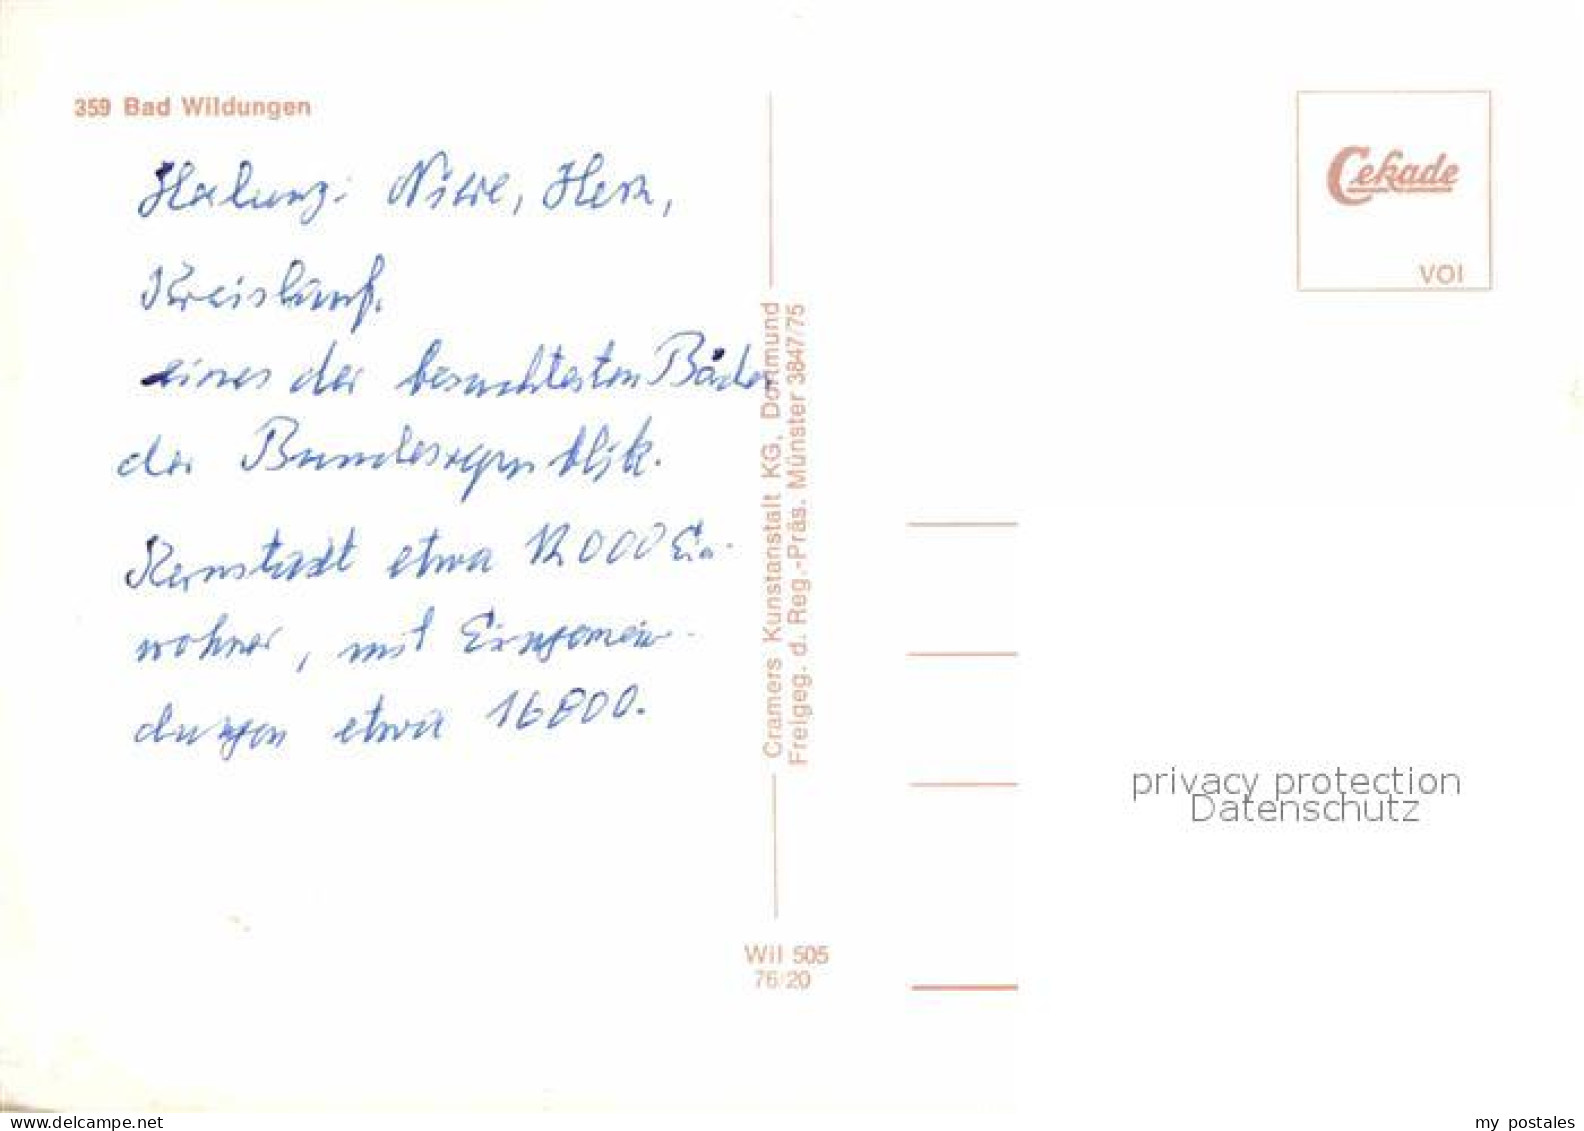 359 Bad Wildungen
Heilung: Niere, Herz,
Kreislauf.
eines der besuchtesten Bäder
der Bundesrepublik.
Kernstadt etwa 12000 Ein-
wohner, mit Eingemein-
dungen etwa 16800.
Cramers Kunstanstalt KG, Dortmund
Freigeg. d. Reg.-Präs. Münster 3847/75
Wil 505
76/20
Cekade
VOI
privacy protection
Datenschutz
www.delcampe.net
my postales